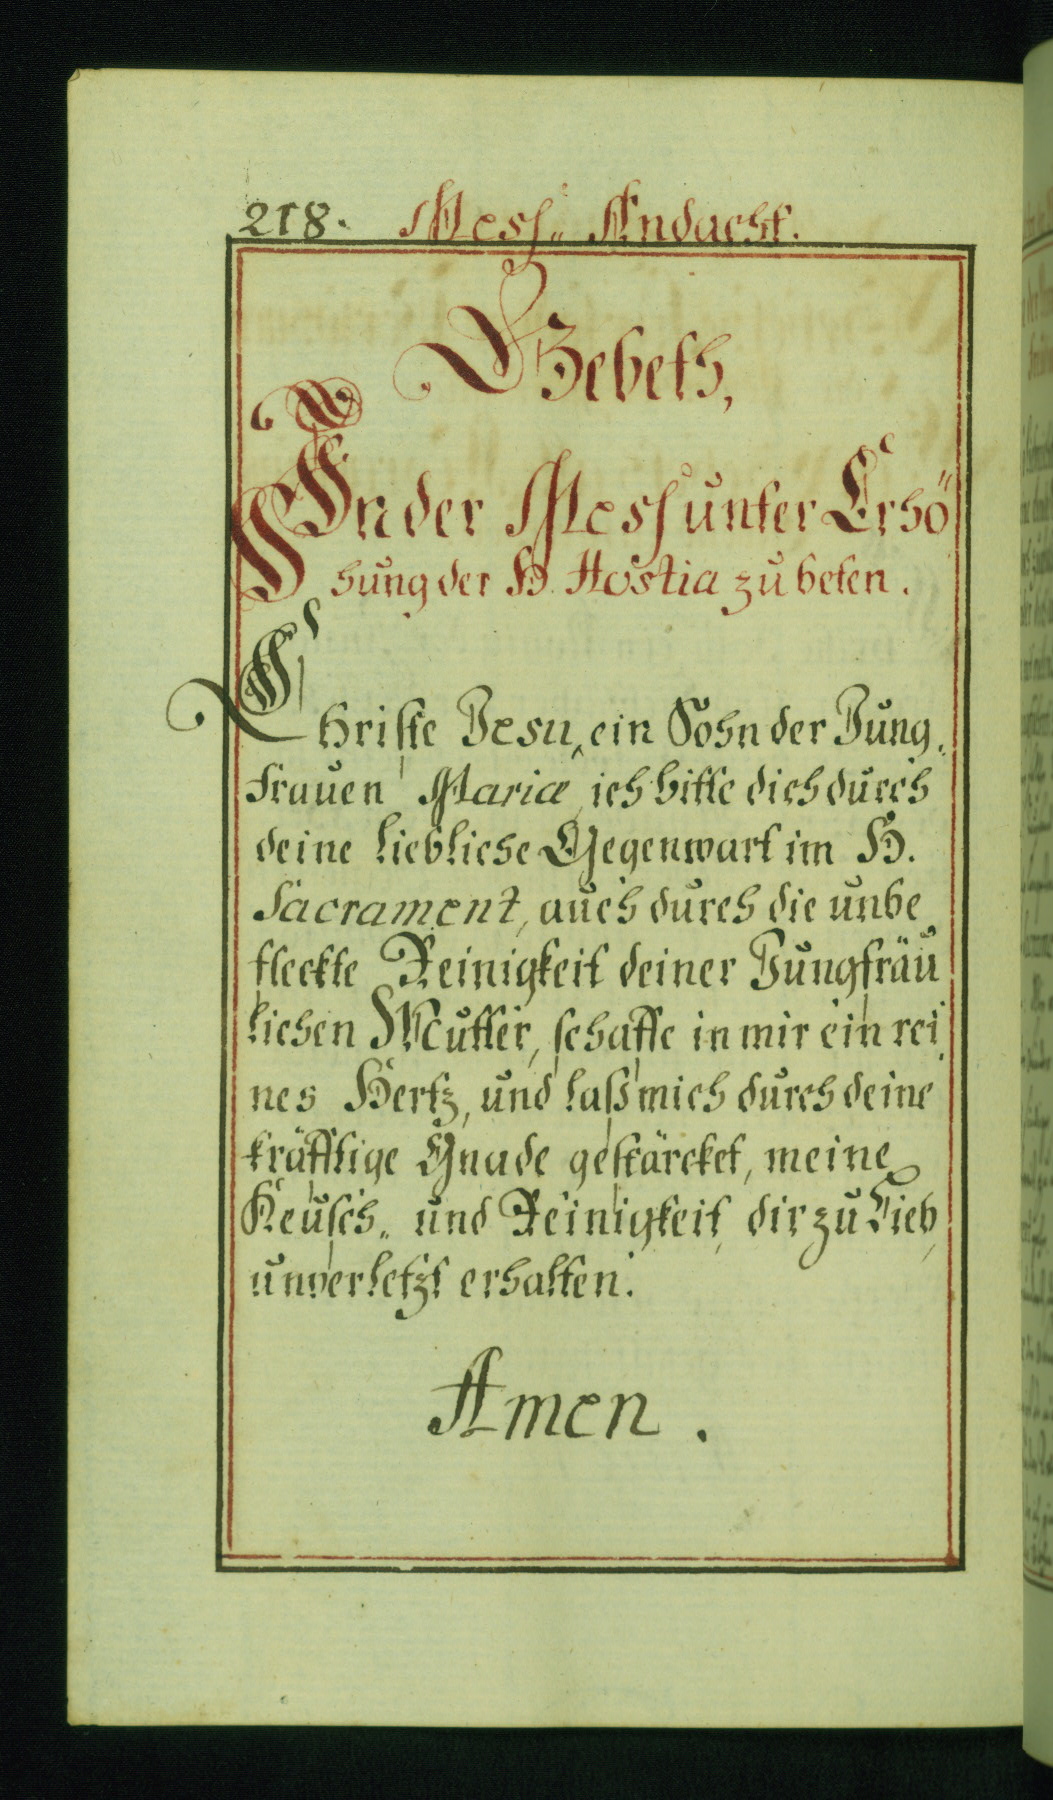 218. Mess„ Andacht.
GEbeth,
IN der Mess unter Erhö
hung der H. Hostia zu beten.
CHriste Jesu, ein Sohn der Jung„
frauen Mariæ, ich bitte dich durch
deine liebliche Gegenwart im H.
Sacrament, auch durch die unbe
fleckte Reinigkeit deiner Jungfräu
lichen Mutter, schaffe in mir ein rei„
nes Hertz, und laß mich durch deine
kräfftige Gnade gestärcket, meine
Keusch„ und Reinigkeit, dir zu Lieb,
unverletzt erhalten.
Amen.